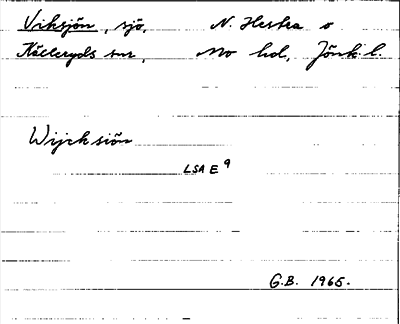 Viksjön, sjö, N. Hestra o
Kålleryds snr, Mo hd, Jönk. l.
Wijcksiön
LSA E 9
G.B. 1965.